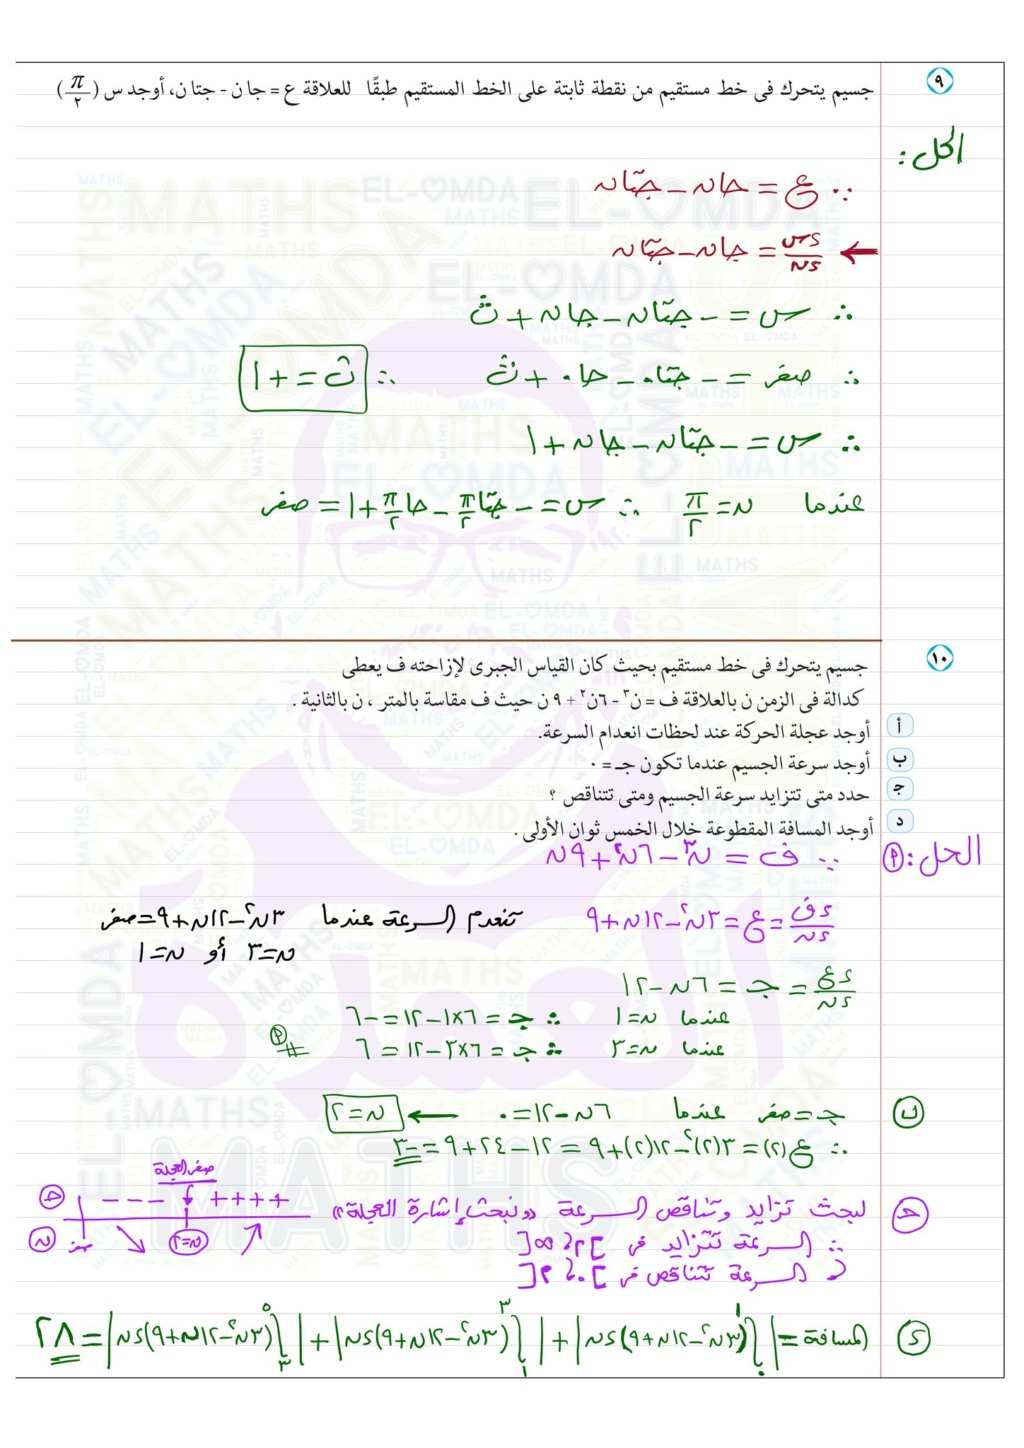 ٩ جسيم يتحرك فى خط مستقيم من نقطة ثابتة على الخط المستقيم طبقًا للعلاقة ع = جا ن - جتا ن، أوجد س (π/٢)
الحل:
∵ ع = جا ن - جتا ن
← ءس/ءن = جا ن - جتا ن
∴ س = - جتا ن - جا ن + ث
∴ صفر = - جتا ٠ - جا ٠ + ث ∴ ث = + ١
∴ س = - جتا ن - جا ن + ١
عندما ن = π/٢ ∴ س = - جتا π/٢ - جا π/٢ + ١ = صفر
١٠ جسيم يتحرك فى خط مستقيم بحيث كان القياس الجبرى لإزاحته ف يعطى
كدالة فى الزمن ن بالعلاقة ف = ن³ - ٦ن² + ٩ ن حيث ف مقاسة بالمتر ، ن بالثانية .
أ أوجد عجلة الحركة عند لحظات انعدام السرعة.
ب أوجد سرعة الجسيم عندما تكون جـ = ٠
ج حدد متى تتزايد سرعة الجسيم ومتى تتناقص ؟
د أوجد المسافة المقطوعة خلال الخمس ثوان الأولى .
الحل: أ ∵ ف = ن³ - ٦ن² + ٩ن
ءف/ءن = ع = ٣ن² - ١٢ن + ٩ تنعدم السرعة عندما ٣ن² - ١٢ن + ٩ = صفر
ن = ٣ أو ن = ١
ءع/ءن = جـ = ٦ن - ١٢
عندما ن = ١ ∴ جـ = ٦×١ - ١٢ = -٦
عندما ن = ٣ ∴ جـ = ٦×٣ - ١٢ = ٦ # أ
ب جـ = صفر عندما ٦ن - ١٢ = ٠ ← ن = ٢
∴ ع(٢) = ٣(٢)² - ١٢(٢) + ٩ = ١٢ - ٢٤ + ٩ = -٣
ح لبحث تزايد وتناقص السرعة «نبحث إشارة العجلة»
صفر العجلة
ح - - - ++++
ن صفر ن = ٢
∴ السرعة تتزايد فى ]٢، ∞[
، السرعة تتناقص فى ]٠، ٢[
ء المسافة = |∫₀¹ (٣ن² - ١٢ن + ٩) ءن| + |∫₁³ (٣ن² - ١٢ن + ٩) ءن| + |∫₃⁵ (٣ن² - ١٢ن + ٩) ءن| = ٢٨
MATHS
EL-OMDA
العمدة